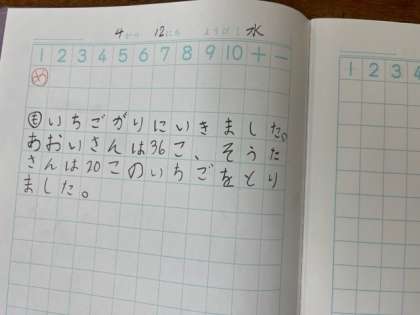 4がつ 12にち ようび 水
1 2 3 4 5 6 7 8 9 10 + −
め
も いちごがりにいきました。
あおいさんは36こ、そうた
さんは20このいちごをとり
ました。
1 2 3 4